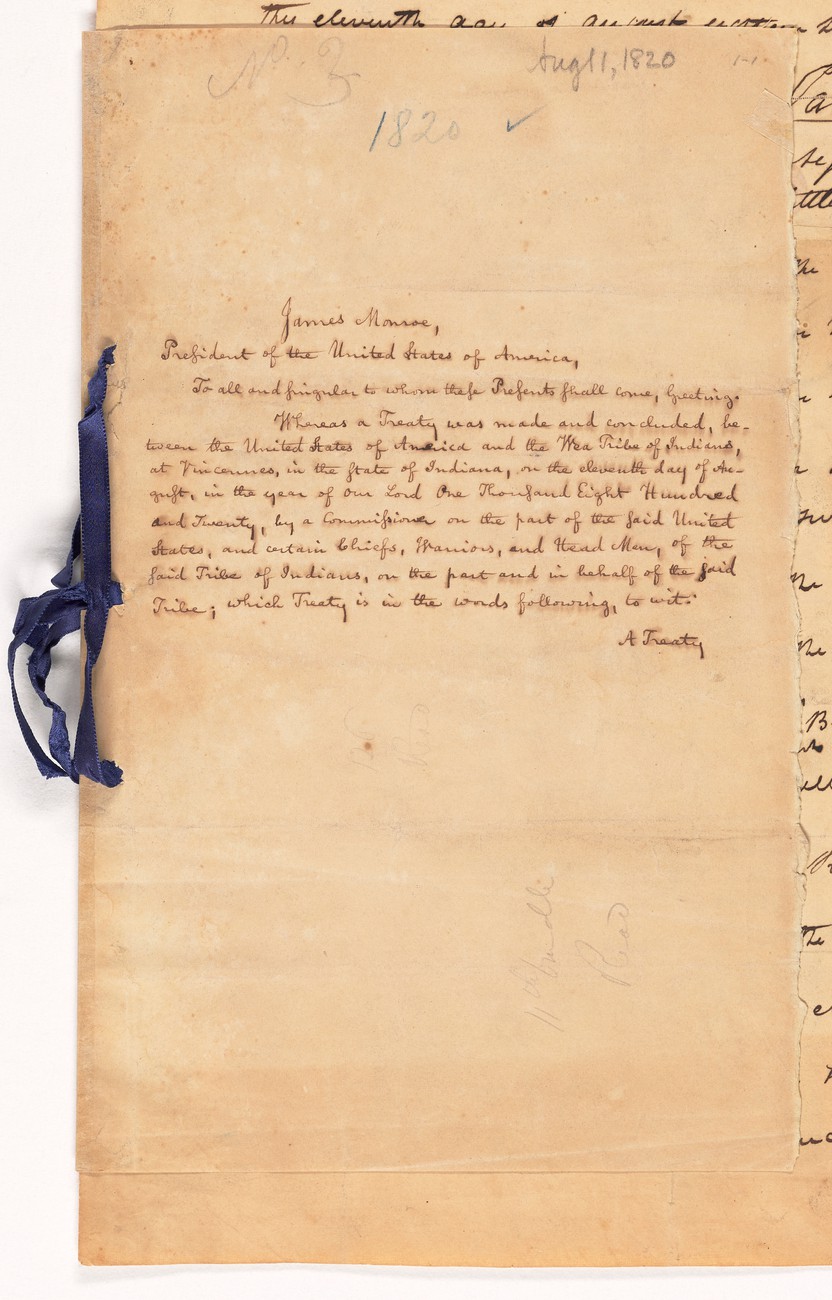 this eleventh day of august
No. 3
Aug 11, 1820
1820 ✓
James Monroe,
President of the United States of America,
To all and singular to whom these Presents shall come, Greeting.
Whereas a Treaty was made and concluded, be-
tween the United States of America and the Wea Tribe of Indians,
at Vincennes, in the State of Indiana, on the eleventh day of Au-
gust, in the year of Our Lord One Thousand Eight Hundred
and Twenty, by a Commissioner on the part of the said United
States, and certain Chiefs, Warriors, and Head Men, of the
said Tribe of Indians, on the part and in behalf of the said
Tribe; which Treaty is in the words following, to wit:
A Treaty
11th bundle
Read
the
the
the
the